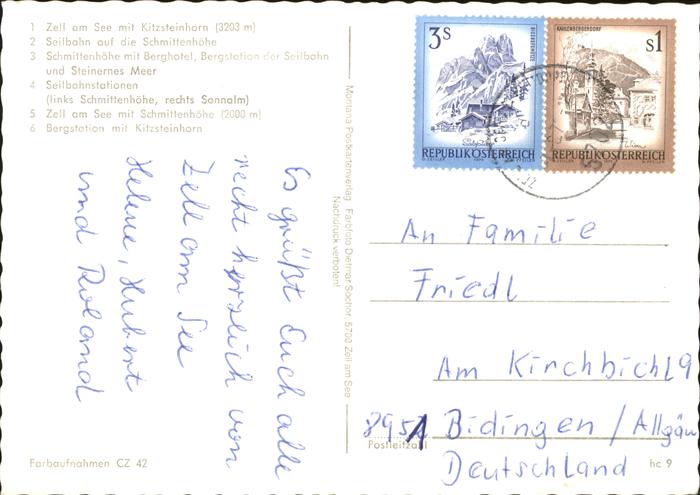 1 Zell am See mit Kitzsteinhorn (3203 m)
2 Seilbahn auf die Schmittenhöhe
3 Schmittenhöhe mit Berghotel, Bergstation der Seilbahn
und Steinernes Meer
4 Seilbahnstationen
(links Schmittenhöhe, rechts Sonnalm)
5 Zell am See mit Schmittenhöhe (2000 m)
6 Bergstation mit Kitzsteinhorn
Es grüßt Euch alle
recht herzlich von
Zell am See
Helene, Hubert
und Roland
Farbaufnahmen CZ 42
Montana Postkartenverlag Farbfoto Dietmar Sochor, 5700 Zell am See
Nachdruck verboten!
3 S
BISCHOFSMÜTZE
REPUBLIK ÖSTERREICH
KAHLENBERGERDORF
S1
Wien
REPUBLIK ÖSTERREICH
An Familie
Friedl
Am Kirchbichl 9
8951 Bidingen / Allgäu
Postleitzahl
Deutschland
hc 9